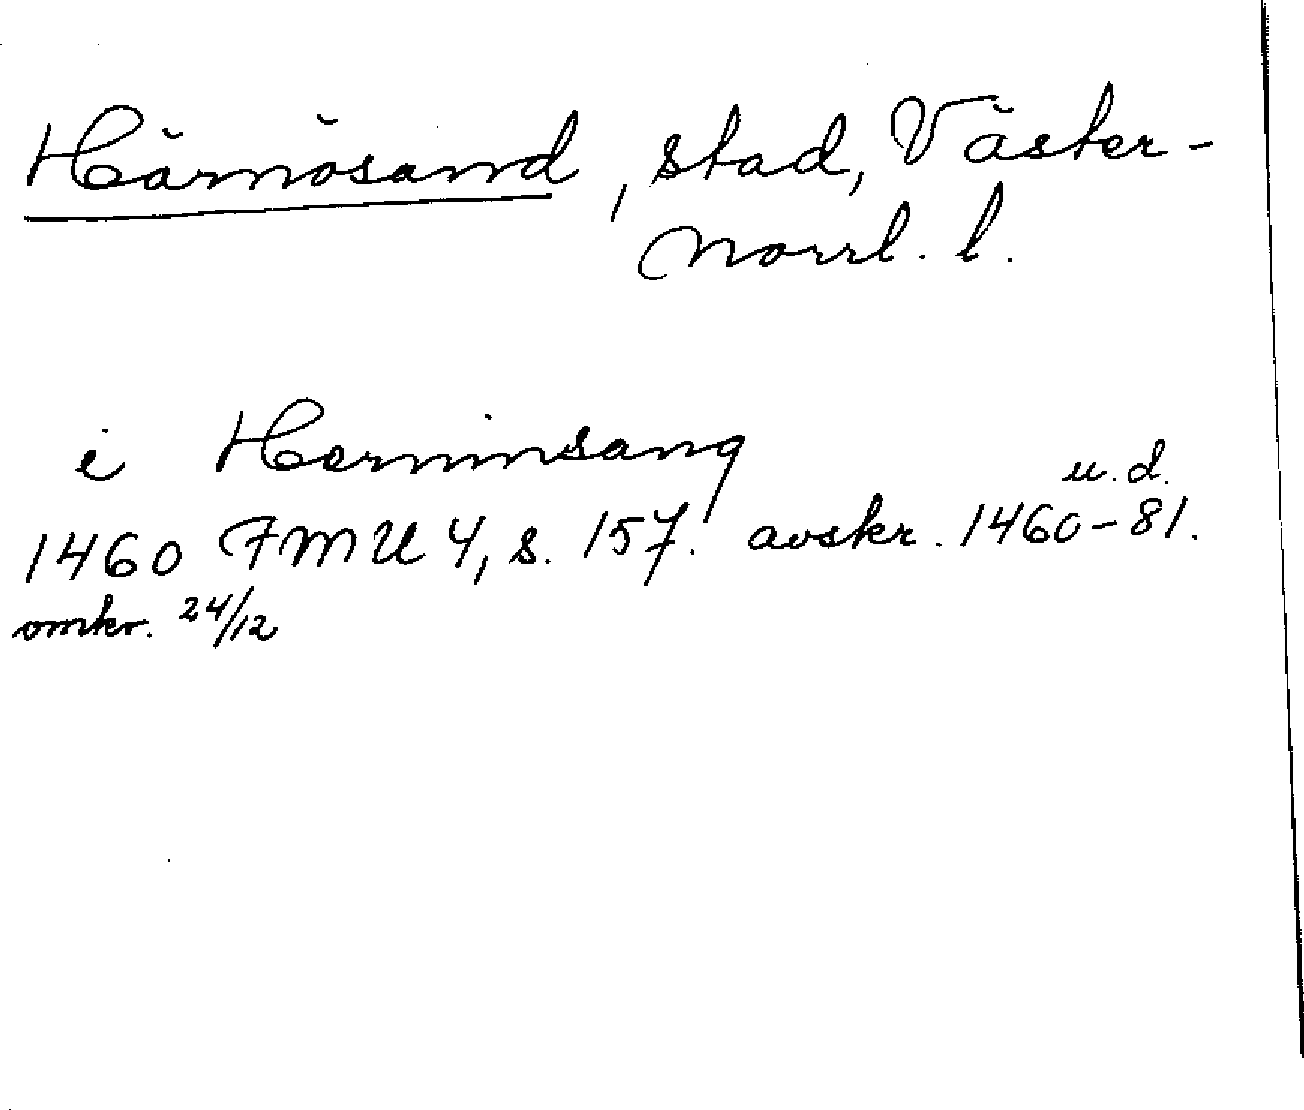 Härnösand, stad, Väster-
norrl. l.
i Herninsang
u. d.
1460 FMU 4, s. 157. avskr. 1460-81.
omkr. 24/12